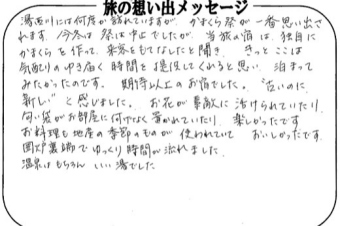 旅の想い出メッセージ
湯西川には何度か訪れていますが、かまくら祭が一番思い出さ
れます。今冬は祭は中止でしたが、当旅の宿は、独自に
かまくらを作って、来客をもてなしたと聞き、きっとここは
気配りのゆき届く時間を提供してくれると思い 泊まって
みたかったのです。期待以上のお宿でした。"古いのに、
新しい"と感じました。お花が素敵に活けられていたり、
匂い袋がお部屋に何げなく置かれていたり、楽しかったです
お料理も地産の季節のものが使われていておいしかったです。
囲炉裏端でゆっくり時間が流れました。
温泉はもちろんいい湯でした